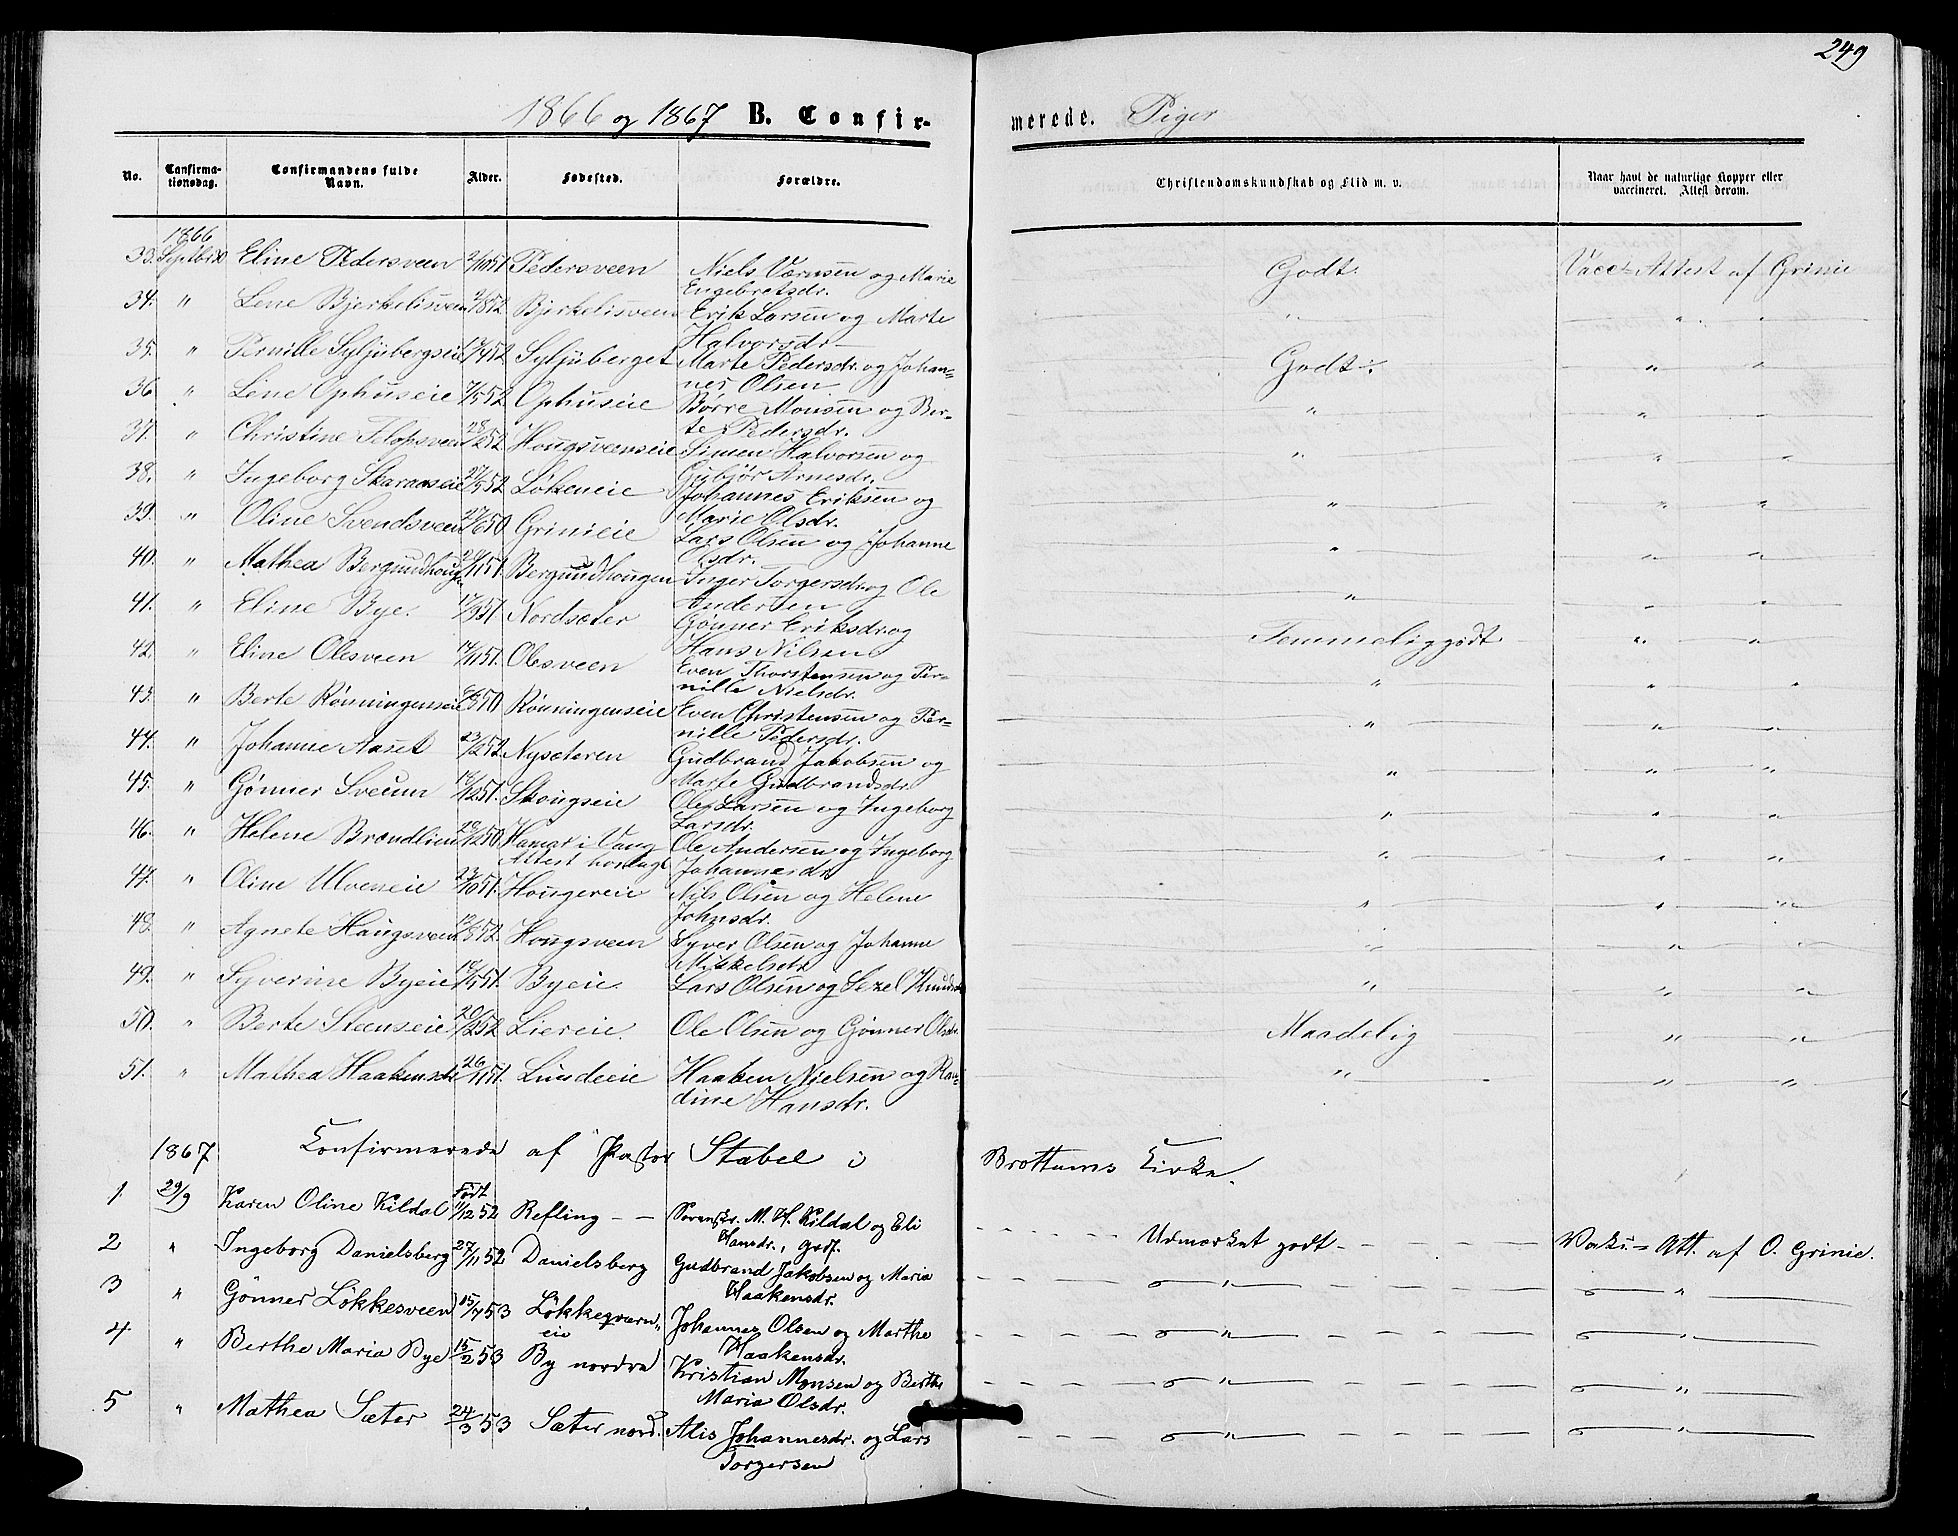 249
1866 og 1867 B. Confirmerede. Piger
No. Confirmationsdag. Confirmandens fulde Navn. Alder. Fødested. Forældre. Christendomskundskab og Flid m. v. Naar havt de naturlige Kopper eller vaccineret. Attest derom.
1866
33. Septbr 30 Eline Pedersveen 2/10 51. Pedersveen Niels Værnsen og Marie Engebretsdr. Godt. Vacc-Attest af Grinie
34. " Lene Bjerkelisveen /8 52 Bjerkelisveen Erik Larsen og Marte Halvorsdr. " " "
35. " Pernille Syljubergseie 17/4 52 Syljuberget Marte Pedersdr. og Johannes Olsen Godt. " "
36 " Lene Ophuseie 7/5 52 Ophuseie Børre Monsen og Berte Pedersdr. " " "
37. " Christine Filopsveen 28/2 52 Hougsveenseie Simen Halvorsen og Gubjør Arnesdr. " " "
38. " Ingeborg Skaraaseie 27/5 52 Løkeneie Johannes Eriksen og Marie Olsdr. " " "
39. " Oline Svendsveen 27/6 50 Grinieie Lars Olsen og Johanne Olsdr. " " "
40. " Mathea Bergundhougen 24/11 51. Bergundhougen Inger Torgersdr. og Ole Andersen " " "
41. " Eline Bye. 17/9 51. Nordsæter Gønner Eriksdr. og Hans Nilsen Temmelig godt " "
42. " Eline Olesveen 14/11 51. Olesveen Even Thorstensen og Pernille Nielsdr. " " "
43. " Berte Rønningenseie 50 Rønningenseie Even Christensen og Pernille Pedersdr. " " "
44. " Johanne Aaset 23/2 52. Nysæteren Gudbrand Jakobsen og Marte Gudbrandsdr. " " "
45. " Gønner Sveum 16/12 51. Skougseie Ole Larsen og Ingeborg Larsdr. " " "
46. " Helene Brændlien 29/12 50. Hamar i Vang Attest Ole Andersen og Ingeborg Johannesdr. " " "
47. " Oline Ulveneie 23/10 51. Hougereie Nils Olsen og Helene Johnsdr. " " "
48. " Agnete Haugsveen 13/8 52. Hougsveen Syver Olsen og Johanne Mikkelsdr " " "
49. " Syverine Byeie 19/5 51. Byeie. Lars Olsen og Sezel Knudsdr " " "
50. " Berte Steenseie 20/2 52 Liereie. Ole Olsen og Gønner Olsdr. Maadelig " "
51. " Mathea Haakensdr 26/11 51. Lundeeie Haaken Nielsen og Randine Hansdr. " " "
1867. Confirmerede af Pastor Stabel i Brøttums Kirke.
Født
1 29/9 Karen Oline Kildal 11/12 52 Refling – – Sorenskr. M. H. Kildal og Eli Hansdr., Udmærket godt – Vaks-Att. af O. Grinie.
2 " Ingeborg Danielsberg 27/11 52 Danielsberg Gudbrand Jakobsen og Maria Haakensdr. " "
3 " Gønner Løkkesveen 15/4 53 Løkkeqværneie Johannes Olsen og Marthe Haakensdr. " "
4 " Berthe Maria Bye 15/2 53 By nordre Kristian Monsen og Berthe Maria Olsdr. " "
5 " Mathea Sæter 24/3 53 Sæter nord. Alis Johannesdr. og Lars Torgersen " "